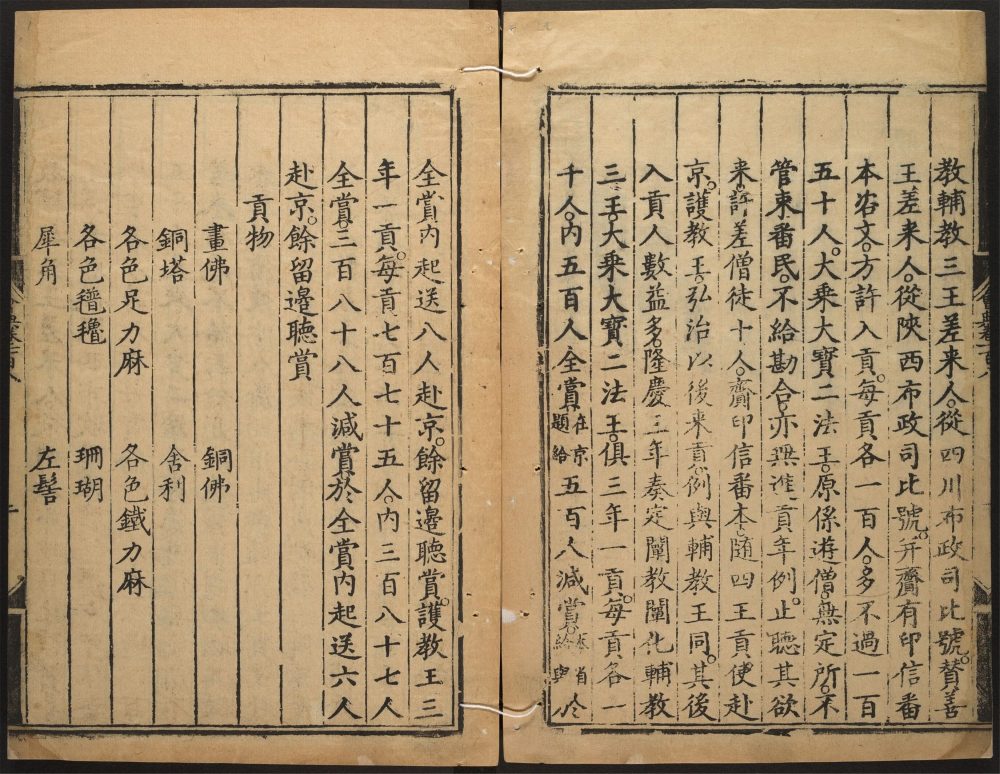 教輔教三王差来人。從四川布政司比號。賛善
王差来人。從陝西布政司比號。并齎有印信番
本咨文。方許入貢。每貢各一百人。多不過一百
五十人。大乗大寶二法王。原係逰僧。無定所。不
管束番民。不給勘合。亦無進貢年例。止聽其欲
来。許差僧徒十人。齎印信番本。随四王貢使赴
京。護教王。弘治以後来貢。例與輔教王同。其後
入貢人數益多。隆慶三年奏定闡教闡化輔教
三王。大乗大寶二法王。俱三年一貢。每貢各一
千人。内五百人全賞在京題給五百人減賞。本省給與於
全賞内起送八人赴京。餘留邉聽賞。護教王三
年一貢。每貢七百七十五人。内三百八十七人
全賞。三百八十八人減賞。於全賞内起送六人
赴京。餘留邉聽賞
貢物
畫佛 銅佛
銅塔 舍利
各色足力麻 各色鐵力麻
各色氆氌 珊瑚
犀角 左髻